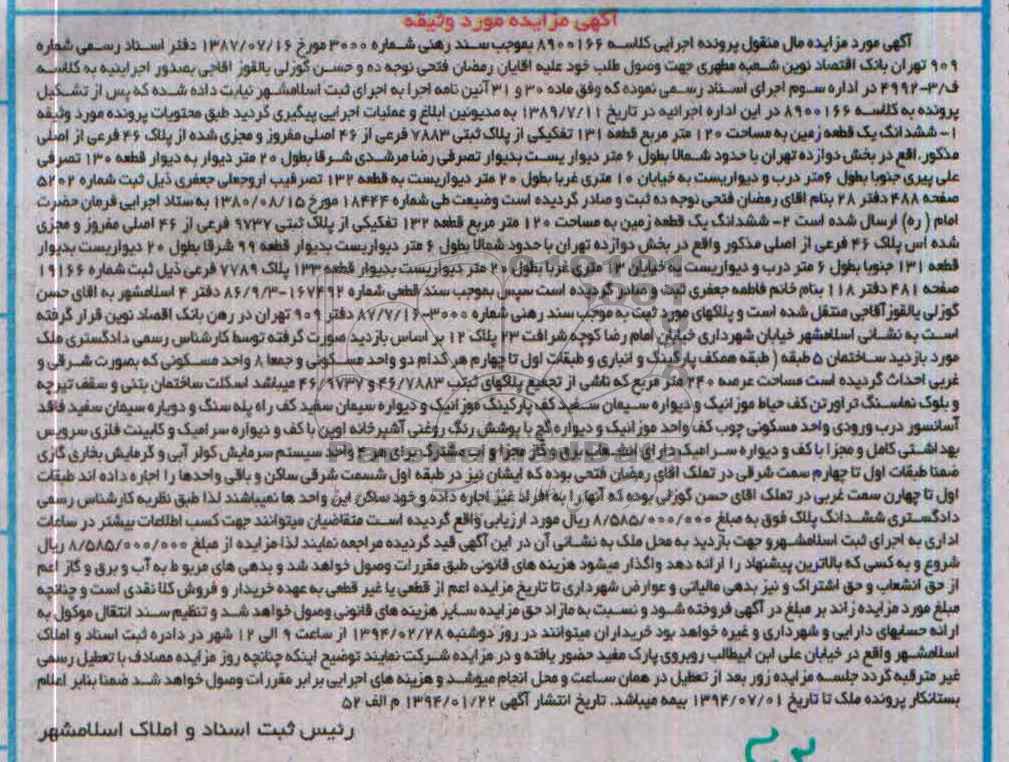 آگهی مزایده مورد وثیقه
آگهی مورد مزایده مال منقول پرونده اجرایی کلاسه ۸۹۰۰۱۶۶ بموجب سند رهنی شماره ۳۰۰۰ مورخ ۱۳۸۷/۰۷/۱۶ دفتر اسناد رسمی شماره
۹۰۹ تهران بانک اقتصاد نوین شعبه مطهری جهت وصول طلب خود علیه اقایان رمضان فتحی نوجه ده و حسن گوزلی یالقوز اقاجی بصدور اجرائیه به کلاسه
ف/۳-۴۹۹۲ در اداره سوم اجرای اسناد رسمی نموده که وفق ماده ۳۰ و ۳۱ آئین نامه اجرا به اجرای ثبت اسلامشهر نیابت داده شده که پس از تشکیل
پرونده به کلاسه ۸۹۰۰۱۶۶ در این اداره اجرائیه در تاریخ ۱۳۸۹/۷/۱۱ به مدیونین ابلاغ و عملیات اجرایی پیگیری گردید طبق محتویات پرونده مورد وثیقه
۱- ششدانگ یک قطعه زمین به مساحت ۱۲۰ متر مربع قطعه ۱۳۱ تفکیکی از پلاک ثبتی ۷۸۸۳ فرعی از ۴۶ اصلی مفروز و مجزی شده از پلاک ۴۶ فرعی از اصلی
مذکور.اقع در بخش دوازده تهران با حدود شمالا بطول ۶ متر دیوار یست بدیوار تصرفی رضا مرشدی شرقا بطول ۲۰ متر دیوار به دیوار قطعه ۱۳۰ تصرفی
علی پیری جنوبا بطول ۶متر درب و دیواریست به خیابان ۱۰ متری غربا بطول ۲۰ متر دیواریست به قطعه ۱۳۲ تصرفیب اروجعلی جعفری ذیل ثبت شماره ۵۲۰۲
صفحه ۴۸۸ دفتر ۲۸ بنام اقای رمضان فتحی نوجه ده ثبت و صادر گردیده است وضیعت طی شماره ۱۸۴۲۴ مورخ ۱۳۸۰/۰۸/۱۵ به ستاد اجرایی فرمان حضرت
امام (ره) ارسال شده است ۲- ششدانگ یک قطعه زمین به مساحت ۱۲۰ متر مربع قطعه ۱۳۲ تفکیکی از پلاک ثبتی ۹۷۳۷ فرعی از ۴۶ اصلی مفروز و مجزی
شده اس پلاک ۴۶ فرعی از اصلی مذکور واقع در بخش دوازده تهران با حدود شمالا بطول ۶ متر دیواریست بدیوار قطعه ۹۹ شرقا بطول ۲۰ دیواریست بدیوار
قطعه ۱۳۱ جنوبا بطول ۶ متر درب و دیواریست به خیابان ۱۲ متری غربا بطول ۲۰ متر دیواریست بدیوار قطعه ۱۳۳ پلاک ۷۷۸۹ فرعی ذیل ثبت شماره ۱۹۱۶۶
صفحه ۴۸۱ دفتر ۱۱۸ بنام خانم فاطمه جعفری ثبت و صادر گردیده است سپس بموجب سند قطعی شماره ۱۶۷۴۹۲-۸۶/۹/۳ دفتر ۴ اسلامشهر به اقای حسن
گوزلی یالقوزآقاجی منتقل شده است و پلاکهای مورد ثبت به موجب سند رهنی شماره ۳۰۰۰-۸۷/۷/۱۶ دفتر ۹۰۹ تهران در رهن بانک اقصاد نوین قرار گرفته
است به نشانی اسلامشهر خیابان شهرداری خیابان امام رضا کوچه شرافت ۲۳ پلاک ۱۲ بر اساس بازدید صورت گرفته توسط کارشناس رسمی دادگستری ملک
مورد بازدید ساختمان ۵ طبقه ( طبقه همکف پارکینگ و انباری و طبقات اول تا چهارم هر کدام دو واحد مسکونی و جمعا ۸ واحد مسکونی که بصورت شرقی و
غربی احداث گردیده است مساحت عرصه ۲۴۰ متر مربع که ناشی از تجمیع پلاکهای ثبتب ۴۶/۷۸۸۳ و ۴۶/۹۷۳۷ میباشد اسکلت ساختمان بتنی و سقف تیرچه
و بلوک نماسنگ تراورتن کف حیاط موزائیک و دیواره سیمان سفید کف پارکینگ موزائیک و دیواره سیمان سفید کف راه پله سنگ و دوپاره سیمان سفید فاقد
آسانسور درب ورودی واحد مسکونی چوب کف واحد موزائیک و دیواره گچ با پوشش رنگ روغنی آشپزخانه اوپن با کف و دیواره سرامیک و کابینت فلزی سرویس
بهداشتی کامل و مجزا با کف و دیواره سرامیک دارای انشعاب برق و گاز مجزا و آب مشترک برای هر ۴ واحد سیستم سرمایش کولر آبی و گرمایش بخاری گازی
ضمنا طبقات اول تا چهارم سمت شرقی در تملک اقای رمضان فتحی بوده که ایشان نیز در طبقه اول شسمت شرقی ساکن و باقی واحدها را اجاره داده اند طبقات
اول تا چهارن سمت غربی در تملک اقای حسن گوزلی بوده که آنها را به افراد غیز اجاره داده و خود ساکن این واحد ها نمیباشند لذا طبق نظریه کارشناس رسمی
دادگستری ششدانگ پلاک فوق به مبلغ ۸/۵۸۵/۰۰۰/۰۰۰ ریال مورد ارزیابی واقع گردیده است متقاضیان میتوانند جهت کسب اطلاعات بیشتر در ساعات
اداری به اجرای ثبت اسلامشهرو جهت بازدید به محل ملک به نشانی آن در این آگهی قید گردیده مراجعه نمایند لذا مزایده از مبلغ ۸/۵۸۵/۰۰۰/۰۰۰ ریال
شروع و به کسی که بالاترین پیشنهاد را ارائه دهد واگذار میشود هزینه های قانونی طبق مقررات وصول خواهد شد و بدهی های مربوط به آب و برق و گاز اعم
از حق انشعاب و حق اشتراک و نیز بدهی مالیاتی و عوارض شهرداری تا تاریخ مزایده اعم از قطعی یا غیر قطعی به عهده خریدار و فروش کلا نقدی است و چنانچه
مبلغ مورد مزایده زائد بر مبلغ در آگهی فروخته شود و نسبت به مازاد حق مزایده سایر هزینه های قانونی وصول خواهد شد و تنظیم سند انتقال موکول به
ارائه حسابهای دارایی و شهرداری و غیره خواهد بود خریداران میتوانند در روز دوشنبه ۱۳۹۴/۰۲/۲۸ از ساعت ۹ الی ۱۲ شهر در دادره ثبت اسناد و املاک
اسلامشهر واقع در خیابان علی ابن ابیطالب روبروی پارک مفید حضور یافته و در مزایده شرکت نمایند توضیح اینکه چنانچه روز مزایده مصادف با تعطیل رسمی
غیر مترقبه گردد جلسه مزایده زور بعد از تعطیل در همان ساعت و محل انجام میوشد و هزینه های اجرایی برابر مقررات وصول خواهد شد ضمنا بنابر اعلام
بستانکار پرونده ملک تا تاریخ ۱۳۹۴/۰۷/۰۱ بیمه میباشد. تاریخ انتشار آگهی ۱۳۹۴/۰۱/۲۲ م الف ۵۲
رئیس ثبت اسناد و املاک اسلامشهر